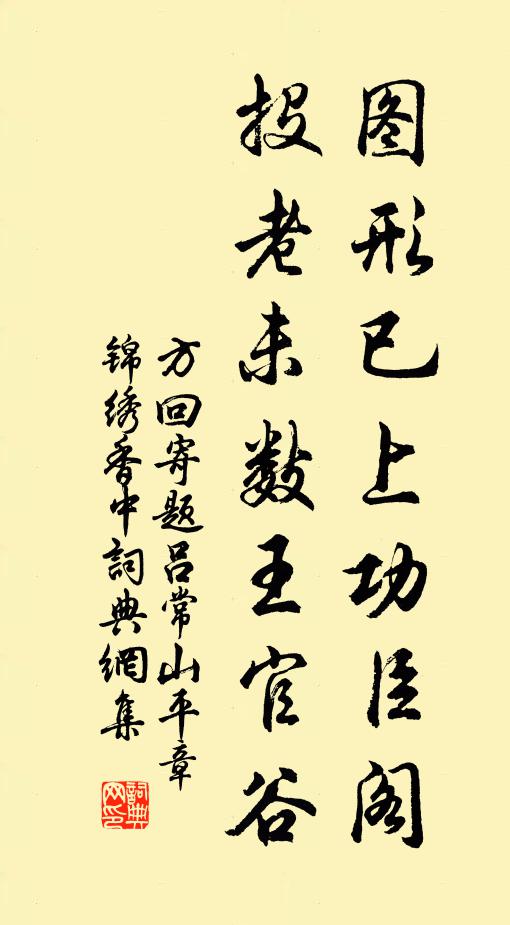 图形已上功臣阁
投老未数王官谷
方回寄题吕常山平章
锦绣香中詞典網集
詞典网印